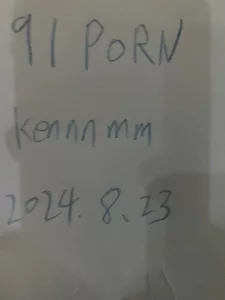 91 PORN
kennnmm
2024.8.23